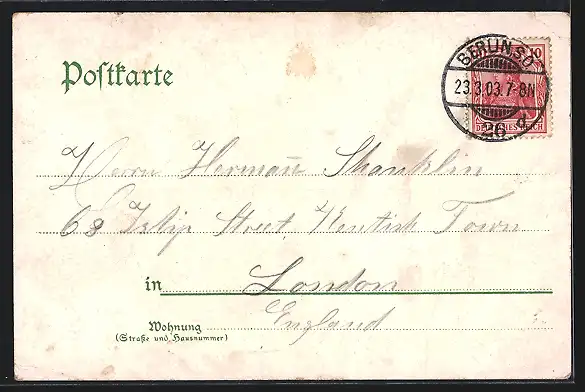 Postkarte
BERLIN SO
23.3.03.7-8N
26 d
10
DEUTSCHES REICH
Herrn Hermann Shanklin
68 Islip Street, Kentish Town
in London
England
Wohnung
(Straße und Hausnummer)